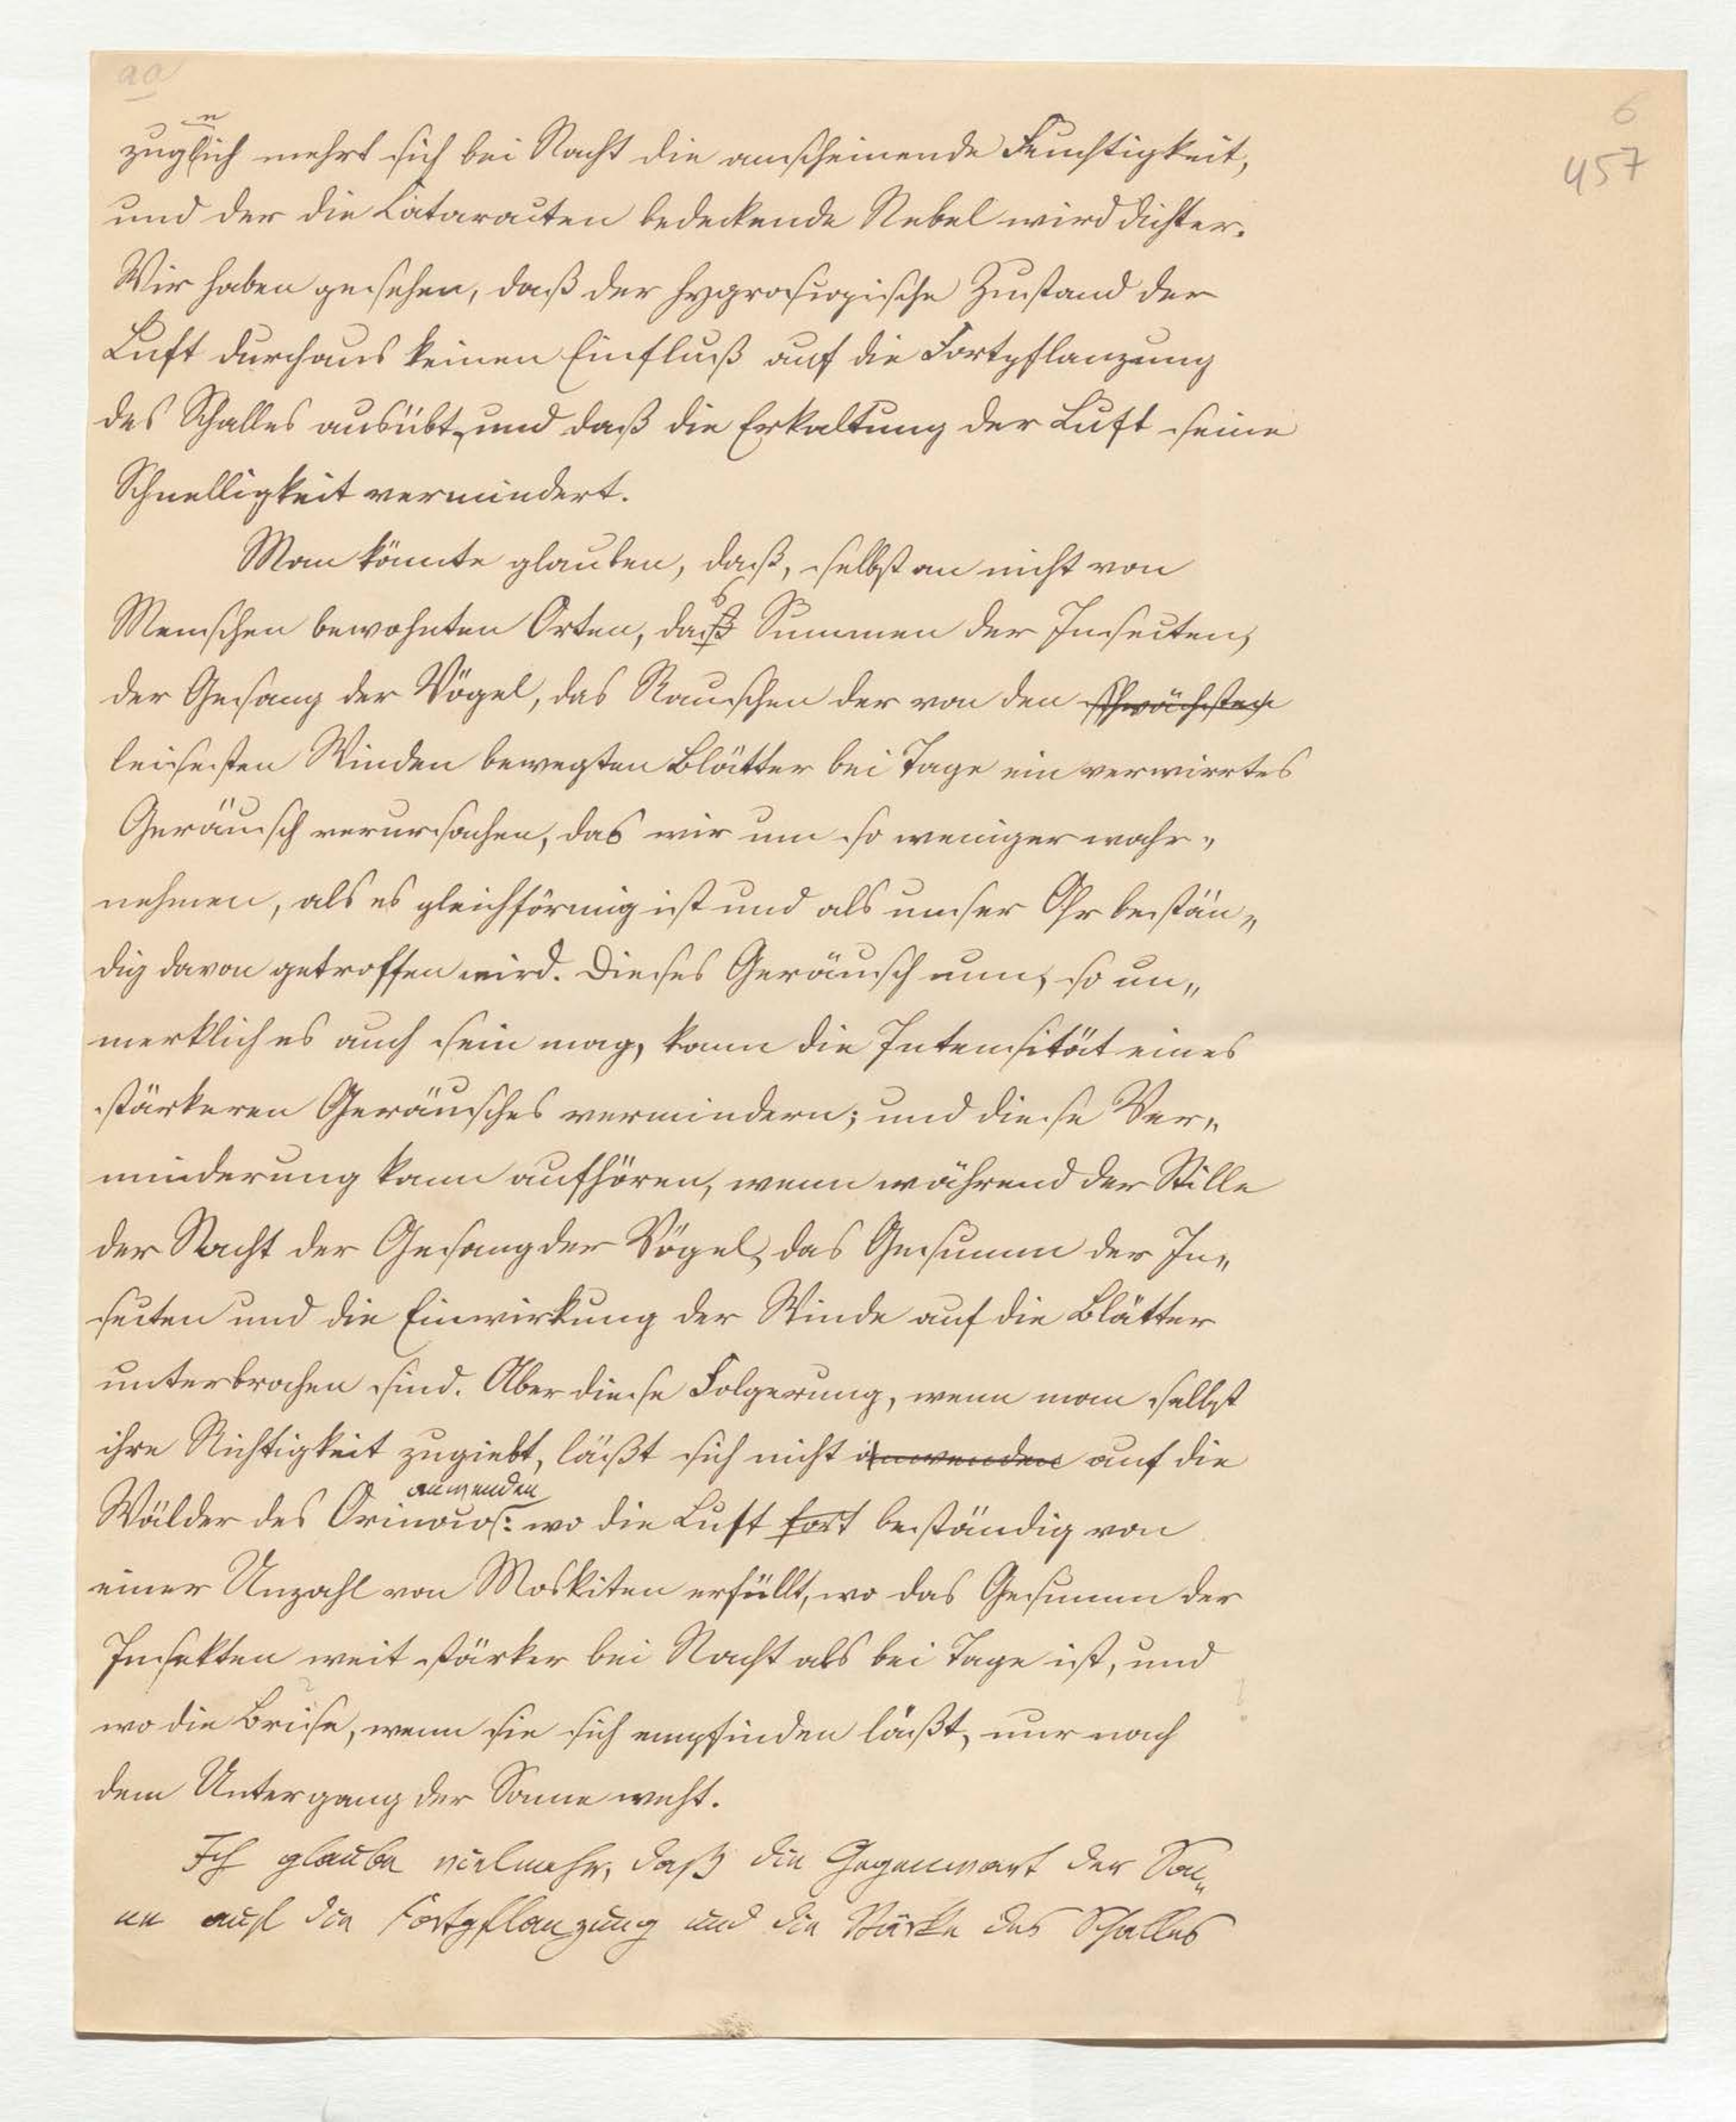 aa
6
457
zugleich mehrt sich bei Nacht die anscheinende Feuchtigkeit,
und der die Cataracten bedeckende Nebel wird dichter.
Wir haben gesehen, daß der hygroscopische Zustand der
Luft durchaus keinen Einfluß auf die Fortpflanzung
des Schalles ausübt, und daß die Erkaltung der Luft seine
Schnelligkeit vermindert.
Man könnte glauben, daß, selbst an nicht von
Menschen bewohnten Orten, das Summen der Insecten,
der Gesang der Vögel, das Rauschen der von den schwächsten
leisesten Winden bewegten Blätter bei Tage ein verwirrtes
Geräusch verursachen, das wir um so weniger wahr„
nehmen, als es gleichförmig ist und als unser Ohr bestän„
dig davon getroffen wird. Dieses Geräusch nun, so un„
merklich es auch sein mag, kann die Intensität eines
stärkeren Geräusches vermindern; und diese Ver„
minderung kann aufhören, wenn während der Stille
der Nacht der Gesang der Vögel, das Gesumm der In„
secten und die Einwirkung der Winde auf die Blätter
unterbrochen sind. Aber diese Folgerung, wenn man selbst
ihre Richtigkeit zugiebt, läßt sich nicht anwenden auf die
anwenden
Wälder des Orinoco's: wo die Luft fort beständig von
einer Unzahl von Moskiten erfüllt, wo das Gesumm der
Insekten weit stärker bei Nacht als bei Tage ist, und
wo die Brise, wenn sie sich empfinden läßt, nur nach
dem Untergang der Sonne weht.
Ich glaube vielmehr, daß die Gegenwart der Son„
ne auf die Fortpflanzung und die Stärke des Schalles